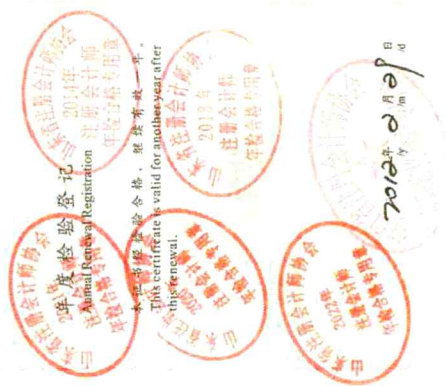 年度检验登记
Annual Renewal Registration
本证书经检验合格，继续有效一年。
This certificate is valid for another year after
this renewal.
山东省注册会计师协会
2014年
注册会计师
年检合格专用章
山东省注册会计师协会
2018年
注册会计师
年检合格专用章
山东省注册会计师协会
注册会计师
年检合格专用章
山东省注册会计师协会
2020年
注册会计师
年检合格专用章
山东省注册会计师协会
2022年
注册会计师
年检合格专用章
2012年 2月29日
/y /m /d